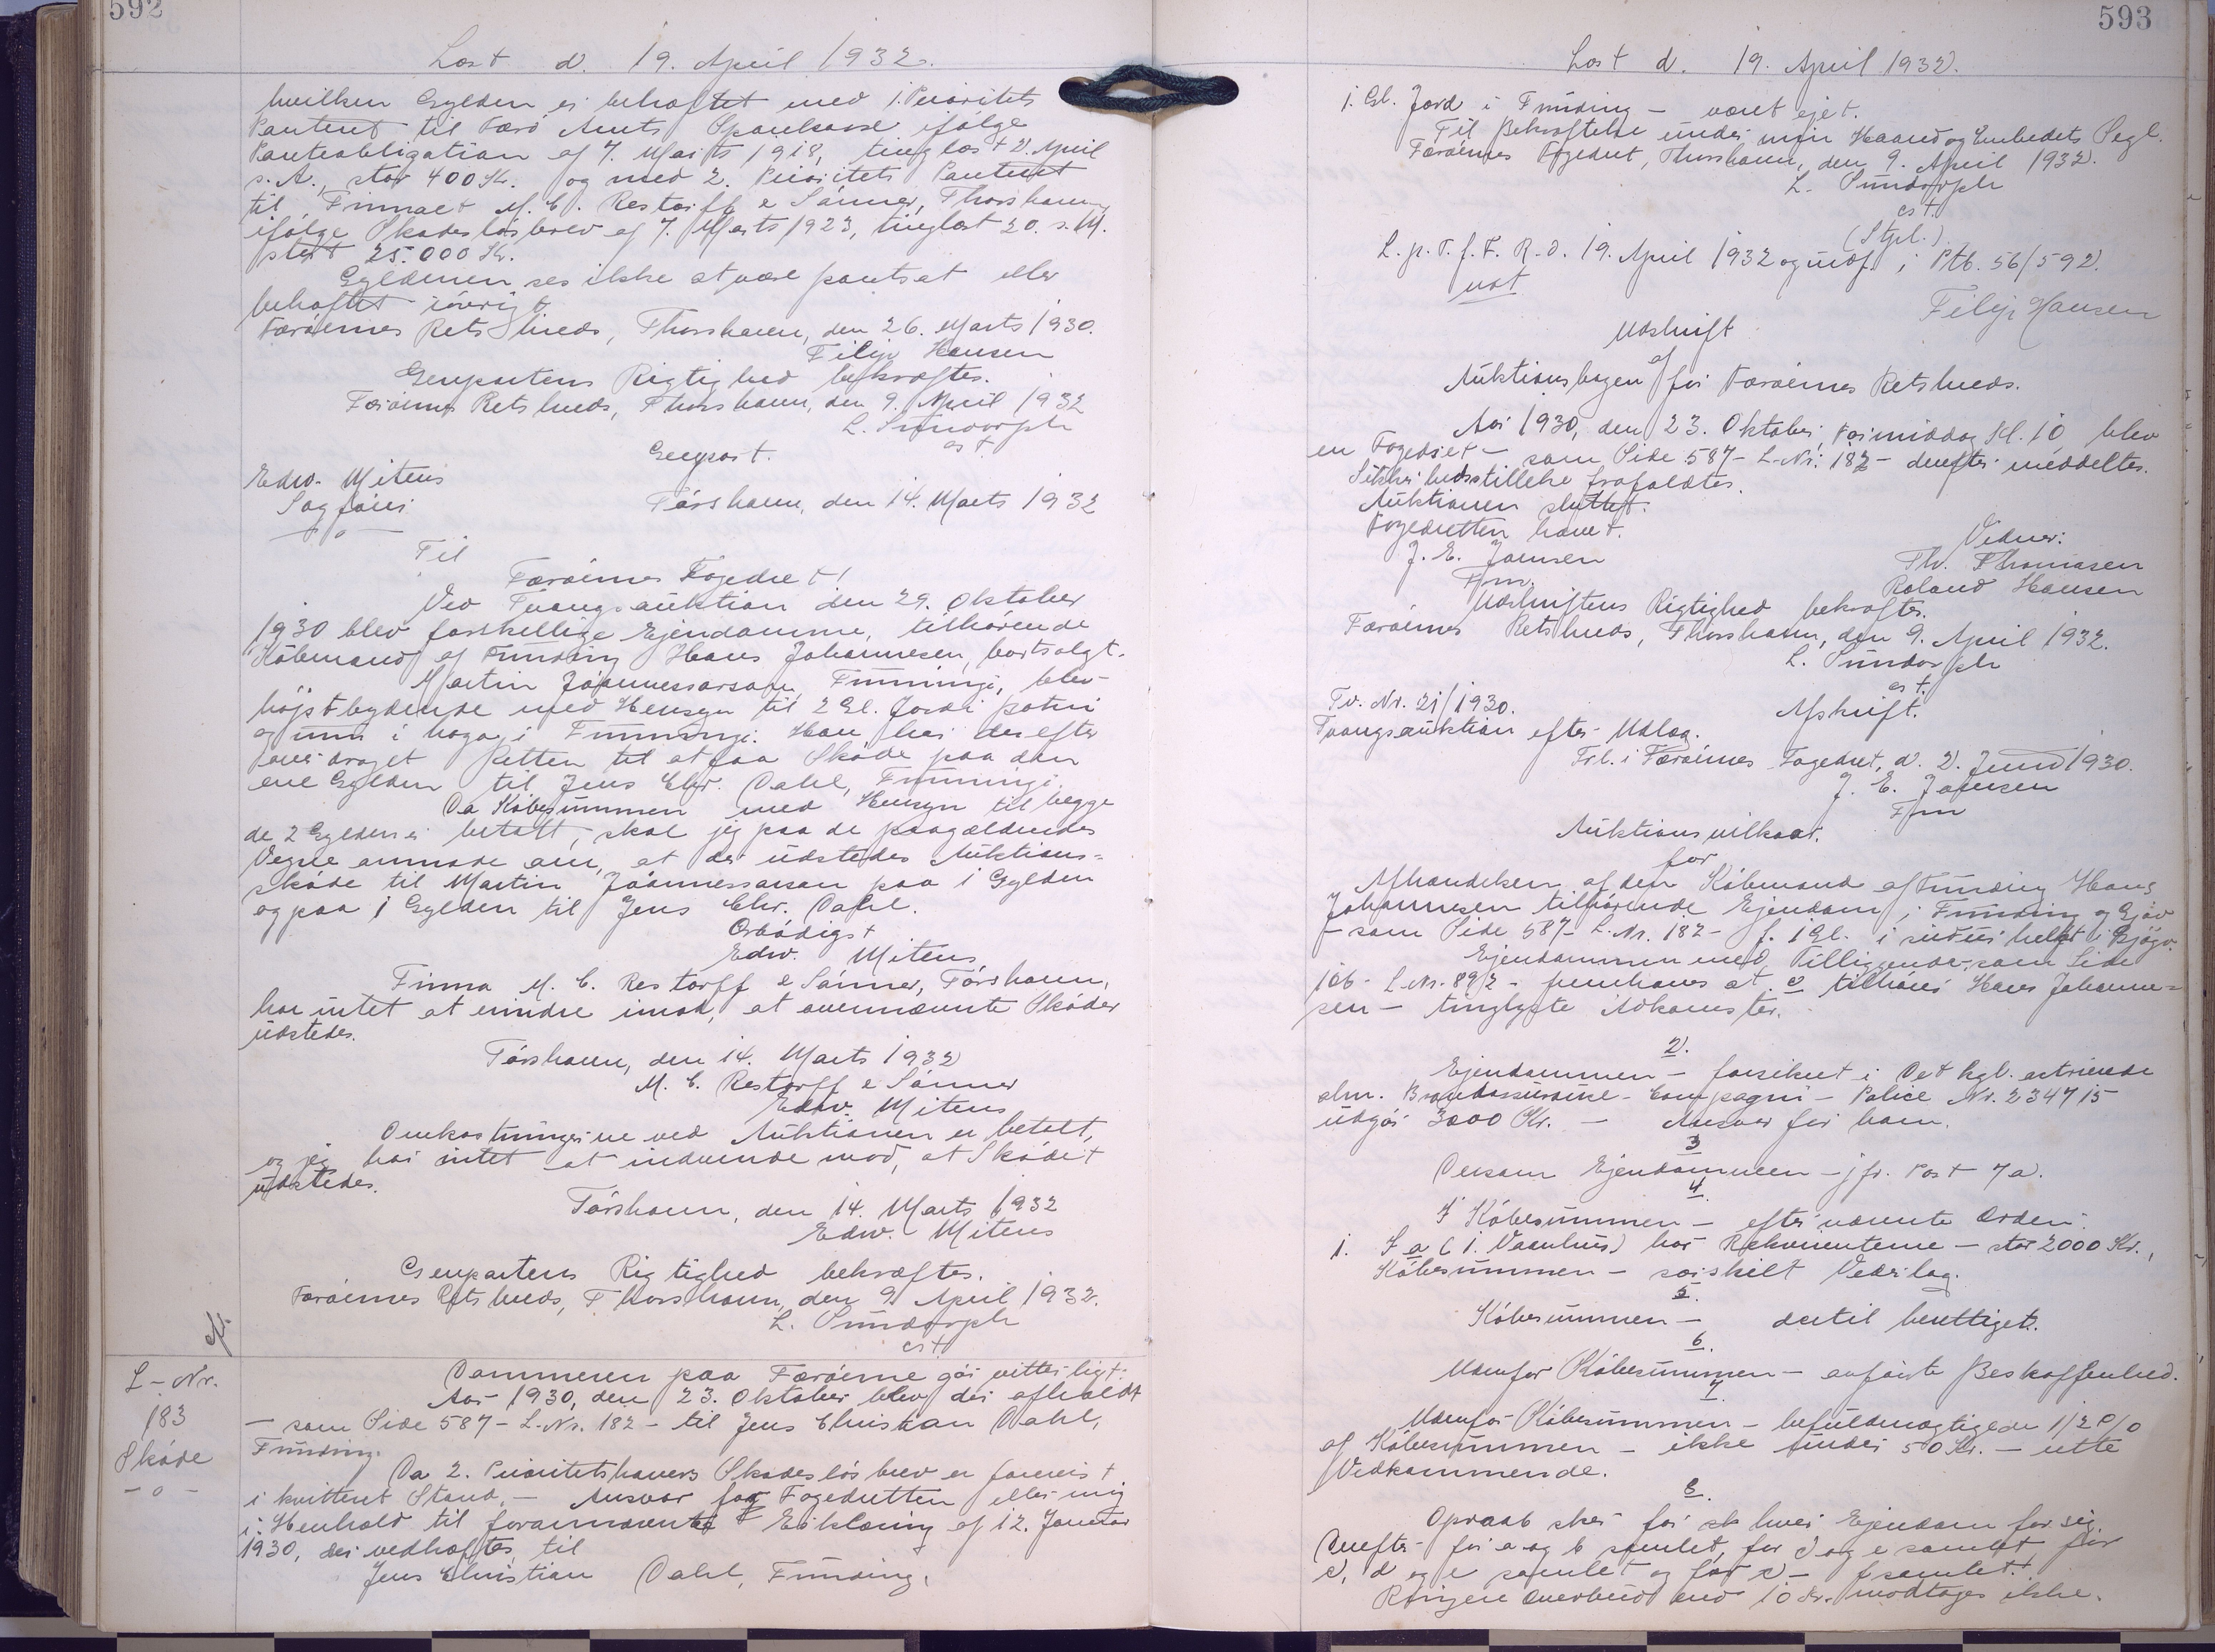 592
Læst d. 19. April 1932.
hvilken Gylden er behæftet med 1. Prioritets
Panteret til Færø Amts Sparekasse ifølge
Panteobligation af 7. Marts 1918, tinglæst 2. April
s. A., stor 400 Kr. og med 2. Prioritets Panteret
til Firmaet M. C. Restorff & Sönner, Thorshavn,
ifølge Skadesløsbrev af 7. Marts 1923, tinglæst 20. s. M.
stort 25.000 Kr.
Gyldenen ses ikke at være pantsat eller
behæftet iøvrigt.
Færöernes Retskreds, Thorshavn, den 26. Marts 1930.
Filip Hansen
Genpartens Rigtighed bekræftes.
Færöernes Retskreds, Thorshavn, den 9. April 1932
L. Sundorph
cst
Genpart.
Edw. Mitens
Sagförer
—o—
Tórshavn, den 14. Marts 1932
Til
Færöernes Fogedret!
Ved Tvangsauktion den 29. Oktober
1930 blev forskellige Ejendomme, tilhörende
Köbmand af Funding Hans Johannesen, bortsolgt.
Martin Jóannessarson, Funningi, blev
højstbydende med Hensyn til 2 Gl. Jord i
og inni i haga i Funningi. Han har derefter
overdraget Retten til at faa Sköde paa den
ene Gylden til Jens Chr. Dahl, Funningi.
Da Köbesummen med Hensyn til begge
de 2 Gylden er betalt, skal jeg paa de paagældendes
Vegne anmode om, at der udstedes Auktions-
sköde til Martin Jóannessarson paa 1 Gylden
og paa 1 Gylden til Jens Chr. Dahl.
Ærbödigst
Edw. Mitens
Firma M. C. Restorff & Sönner, Tórshavn,
har intet at erindre imod, at ovennævnte Sköder
udstedes.
Tórshavn, den 14. Marts 1932
M. C. Restorff & Sönner
Edw. Mitens
Omkostningerne ved Auktionen er betalt,
og jeg har intet at indvende mod, at Sködet
udstedes.
Tórshavn, den 14. Marts 1932
Edw. Mitens
Genpartens Rigtighed bekræftes.
Færöernes Retskreds, Thorshavn, den 9. April 1932.
L. Sundorph
cst
L-Nr.
183
Sköde
-o-
Dommeren paa Færöerne gör vitterligt:
Aar 1930, den 23. Oktober blev der afholdt
— som Side 587 - L.Nr. 182 - til Jens Christian Dahl,
Funding.
Da 2. Prioritetshavers Skadeslösbrev er forevist
i kvitteret Stand, — Ansvar for Fogedretten eller mig
i Henhold til forannævnte Erklæring af 12. Januar
1930, der vedhæftes, til
Jens Christian Dahl, Funding,
593
Læst d. 19. April 1932.
1. Gl. Jord i Funding — været ejet.
Til Bekræftelse under min Haand og Embedets Segl.
Færöernes Fogedret, Thorshavn, den 9. April 1932.
L. Sundorph
cst.
(Stpl.)
L. p. T. f. F. R. d. 19. April 1932 og indf. i Ptb. 56/592.
Filip Hansen
Udskrift
af
Auktionsbogen for Færöernes Retskreds.
Aar 1930, den 23. Oktober, Formiddag Kl. 10 blev
en Fogedret — som Side 587 - L-Nr. 182 - derefter meddeltes.
Sikkerhedsstillelse frafaldtes.
Auktionen sluttet.
Fogedretten hævet.
J. E. Joensen
Fm.
Vidner:
Th. Thomasen
Roland Hansen
Udskriftens Rigtighed bekræftes.
Færöernes Retskreds, Thorshavn, den 9. April 1932.
L. Sundorph
cst.
Tv. Nr. 21/1930.
Afskrift.
Tvangsauktion efter Udlæg.
Frl. i Færöernes Fogedret, d. 2. Juni 1930.
J. E. Joensen
Fm
Auktionsvilkaar.
for
Afhændelsen af den Köbmand af Funding Hans
Johannesen tilhörende Ejendom i Funding og Gjov
— som Side 587 - L.Nr. 182 - f. 1 Gl. i helgt i Gjógv.
Ejendommen med Tilliggende, som Side
106 - L.Nr. 89/2 - fremhæves at c tilhörer Hans Johanne-
sen — tinglyste Adkomster.
2.
Ejendommen — forsikret i Det kgl. octroierede
alm. Brandassurance-Compagni — Police Nr. 234715
udgör 3000 Kr. — Ansvar for ham.
3
Dersom Ejendommen — jfr. Post 7a.
4.
I Köbesummen — efternævnte Orden:
1. I a (1. Vaanhus) har Rekvirenterne — stor 2000 Kr.,
Köbesummen — særskilt Vederlag.
5.
Köbesummen — dertil berettiget.
6.
Udenfor Köbesummen — anförte Beskaffenhed.
7
Udenfor Köbesummen — befuldmægtigede 1/2 %
af Köbesummen — ikke under 50 Kr. — rette
Vedkommende.
8.
Opraab sker for hver Ejendom for sig.
Derefter for a og b samlet, for d og e samlet for
c, d og e samlet og for c - f samlet.
Ringere Overbud end 10 Kr. modtages ikke.